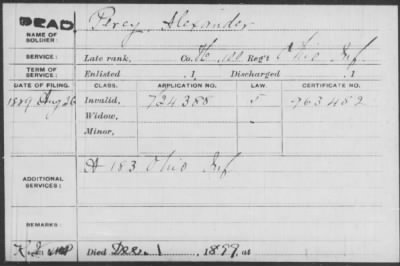 DEAD.
Percy, Alexander
NAME OF SOLDIER:
SERVICE: Late rank, Co. Reg't Ohio Inf
TERM OF SERVICE: Enlisted , 1 Discharged , 1
DATE OF FILING. CLASS. APPLICATION NO. LAW. CERTIFICATE NO.
1889 Aug 26 Invalid, 724388 963482
Widow,
Minor,
183 Ohio Inf
ADDITIONAL SERVICES:
REMARKS:
Died Dec. 1, 1899, at